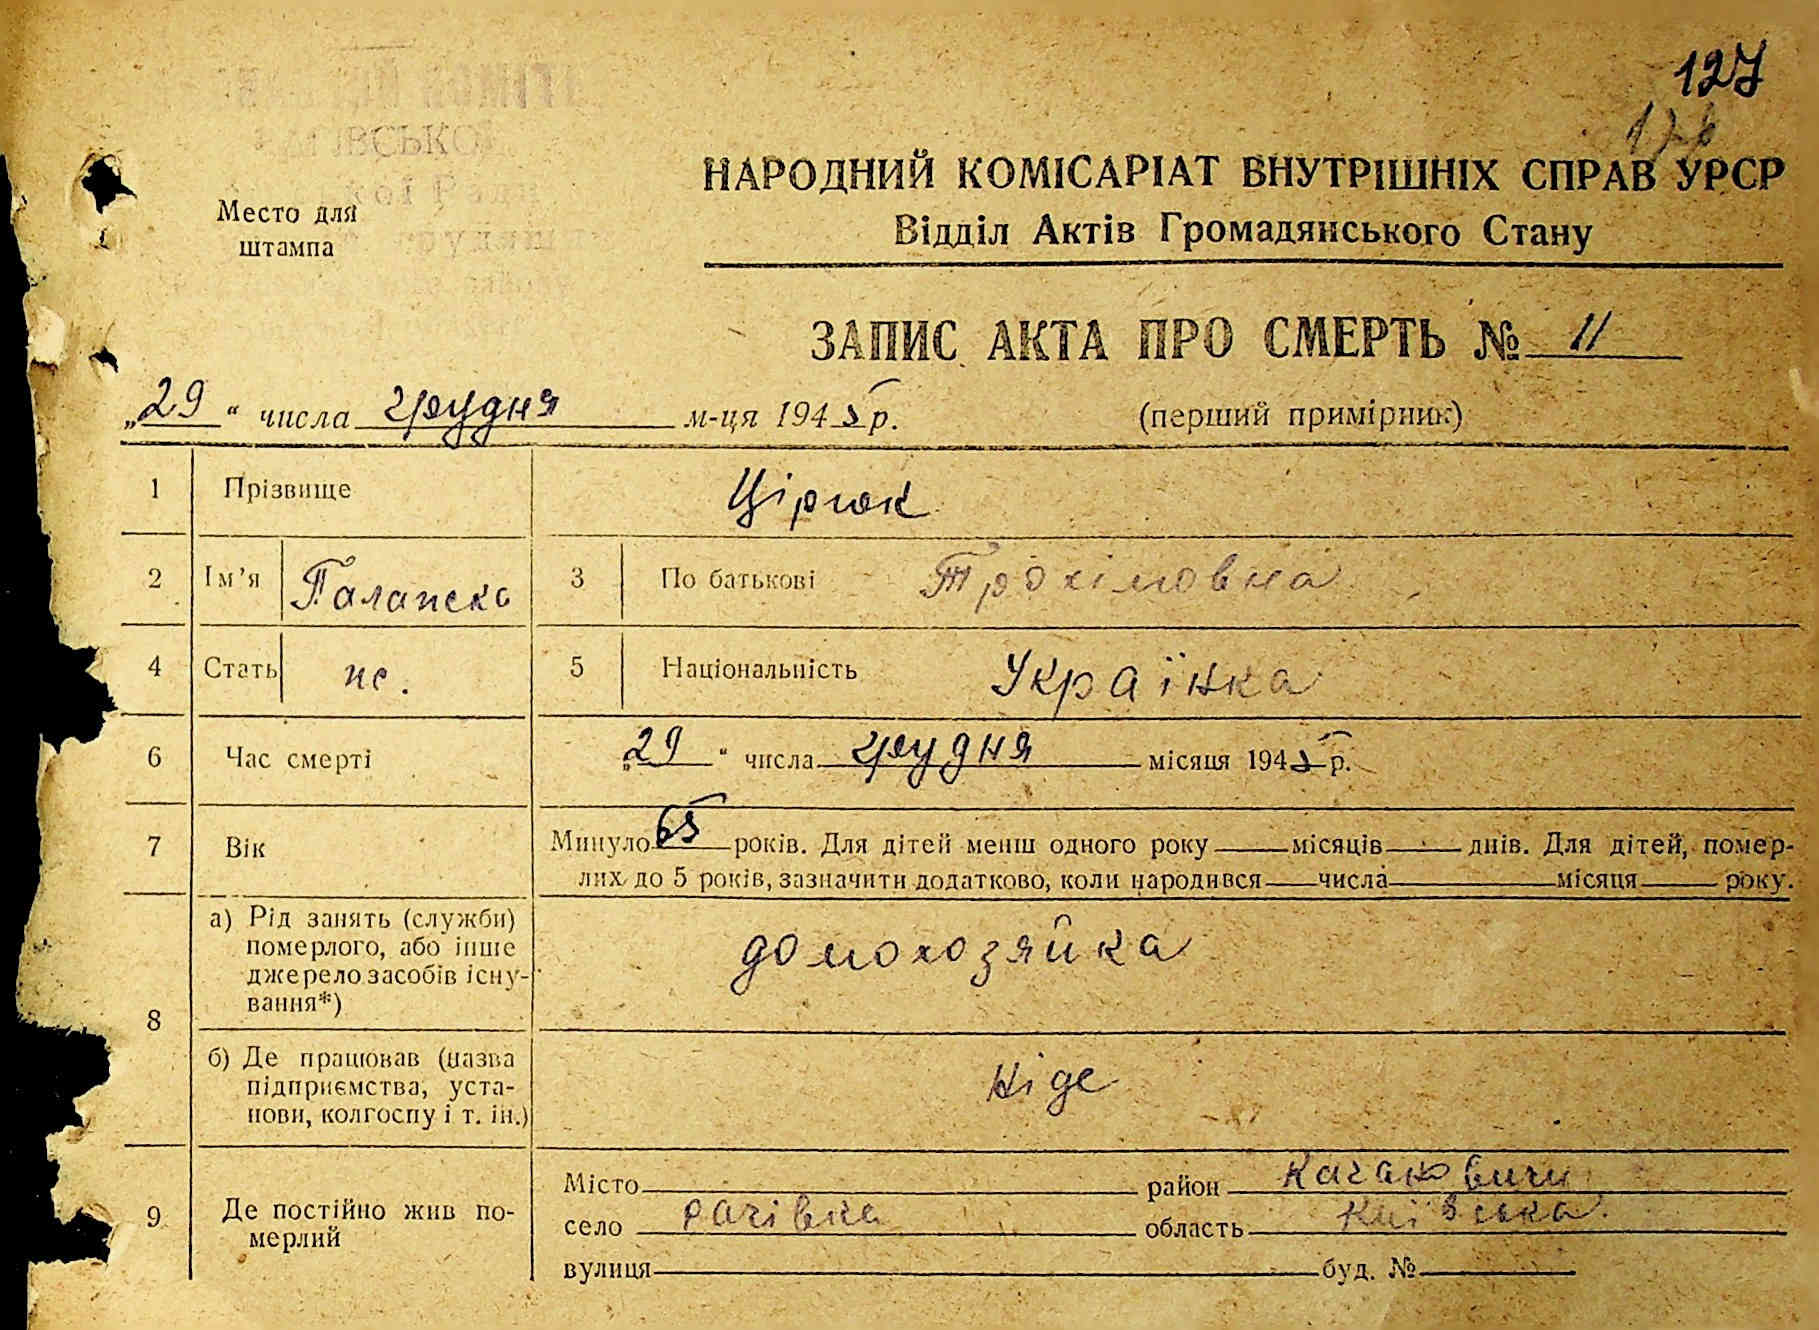 127
126
НАРОДНИЙ КОМІСАРІАТ ВНУТРІШНІХ СПРАВ УРСР
Відділ Актів Громадянського Стану
Место для
штампа
ЗАПИС АКТА ПРО СМЕРТЬ № 11
„29“ числа грудня м-ця 1945 р.
(перший примірник)
1 Прізвище Цірюк
2 Ім’я 3 По батькові Трохімовна
4 Стать ж. 5 Національність Українка
6 Час смерті „29“ числа грудня місяця 1945 р.
7 Вік Минуло 65 років. Для дітей менш одного року місяців днів. Для дітей, помер-
лих до 5 років, зазначити додатково, коли народився числа місяця року.
8 а) Рід занять (служби)
померлого, або інше
джерело засобів існу-
вання*)
домохозяйка
б) Де працював (назва
підприємства, уста-
нови, колгоспу і т. ін.)
Ніде
9 Де постійно жив по-
мерлий
Місто район Кагановичи
село Рачівка область Київська
вулиця буд. №